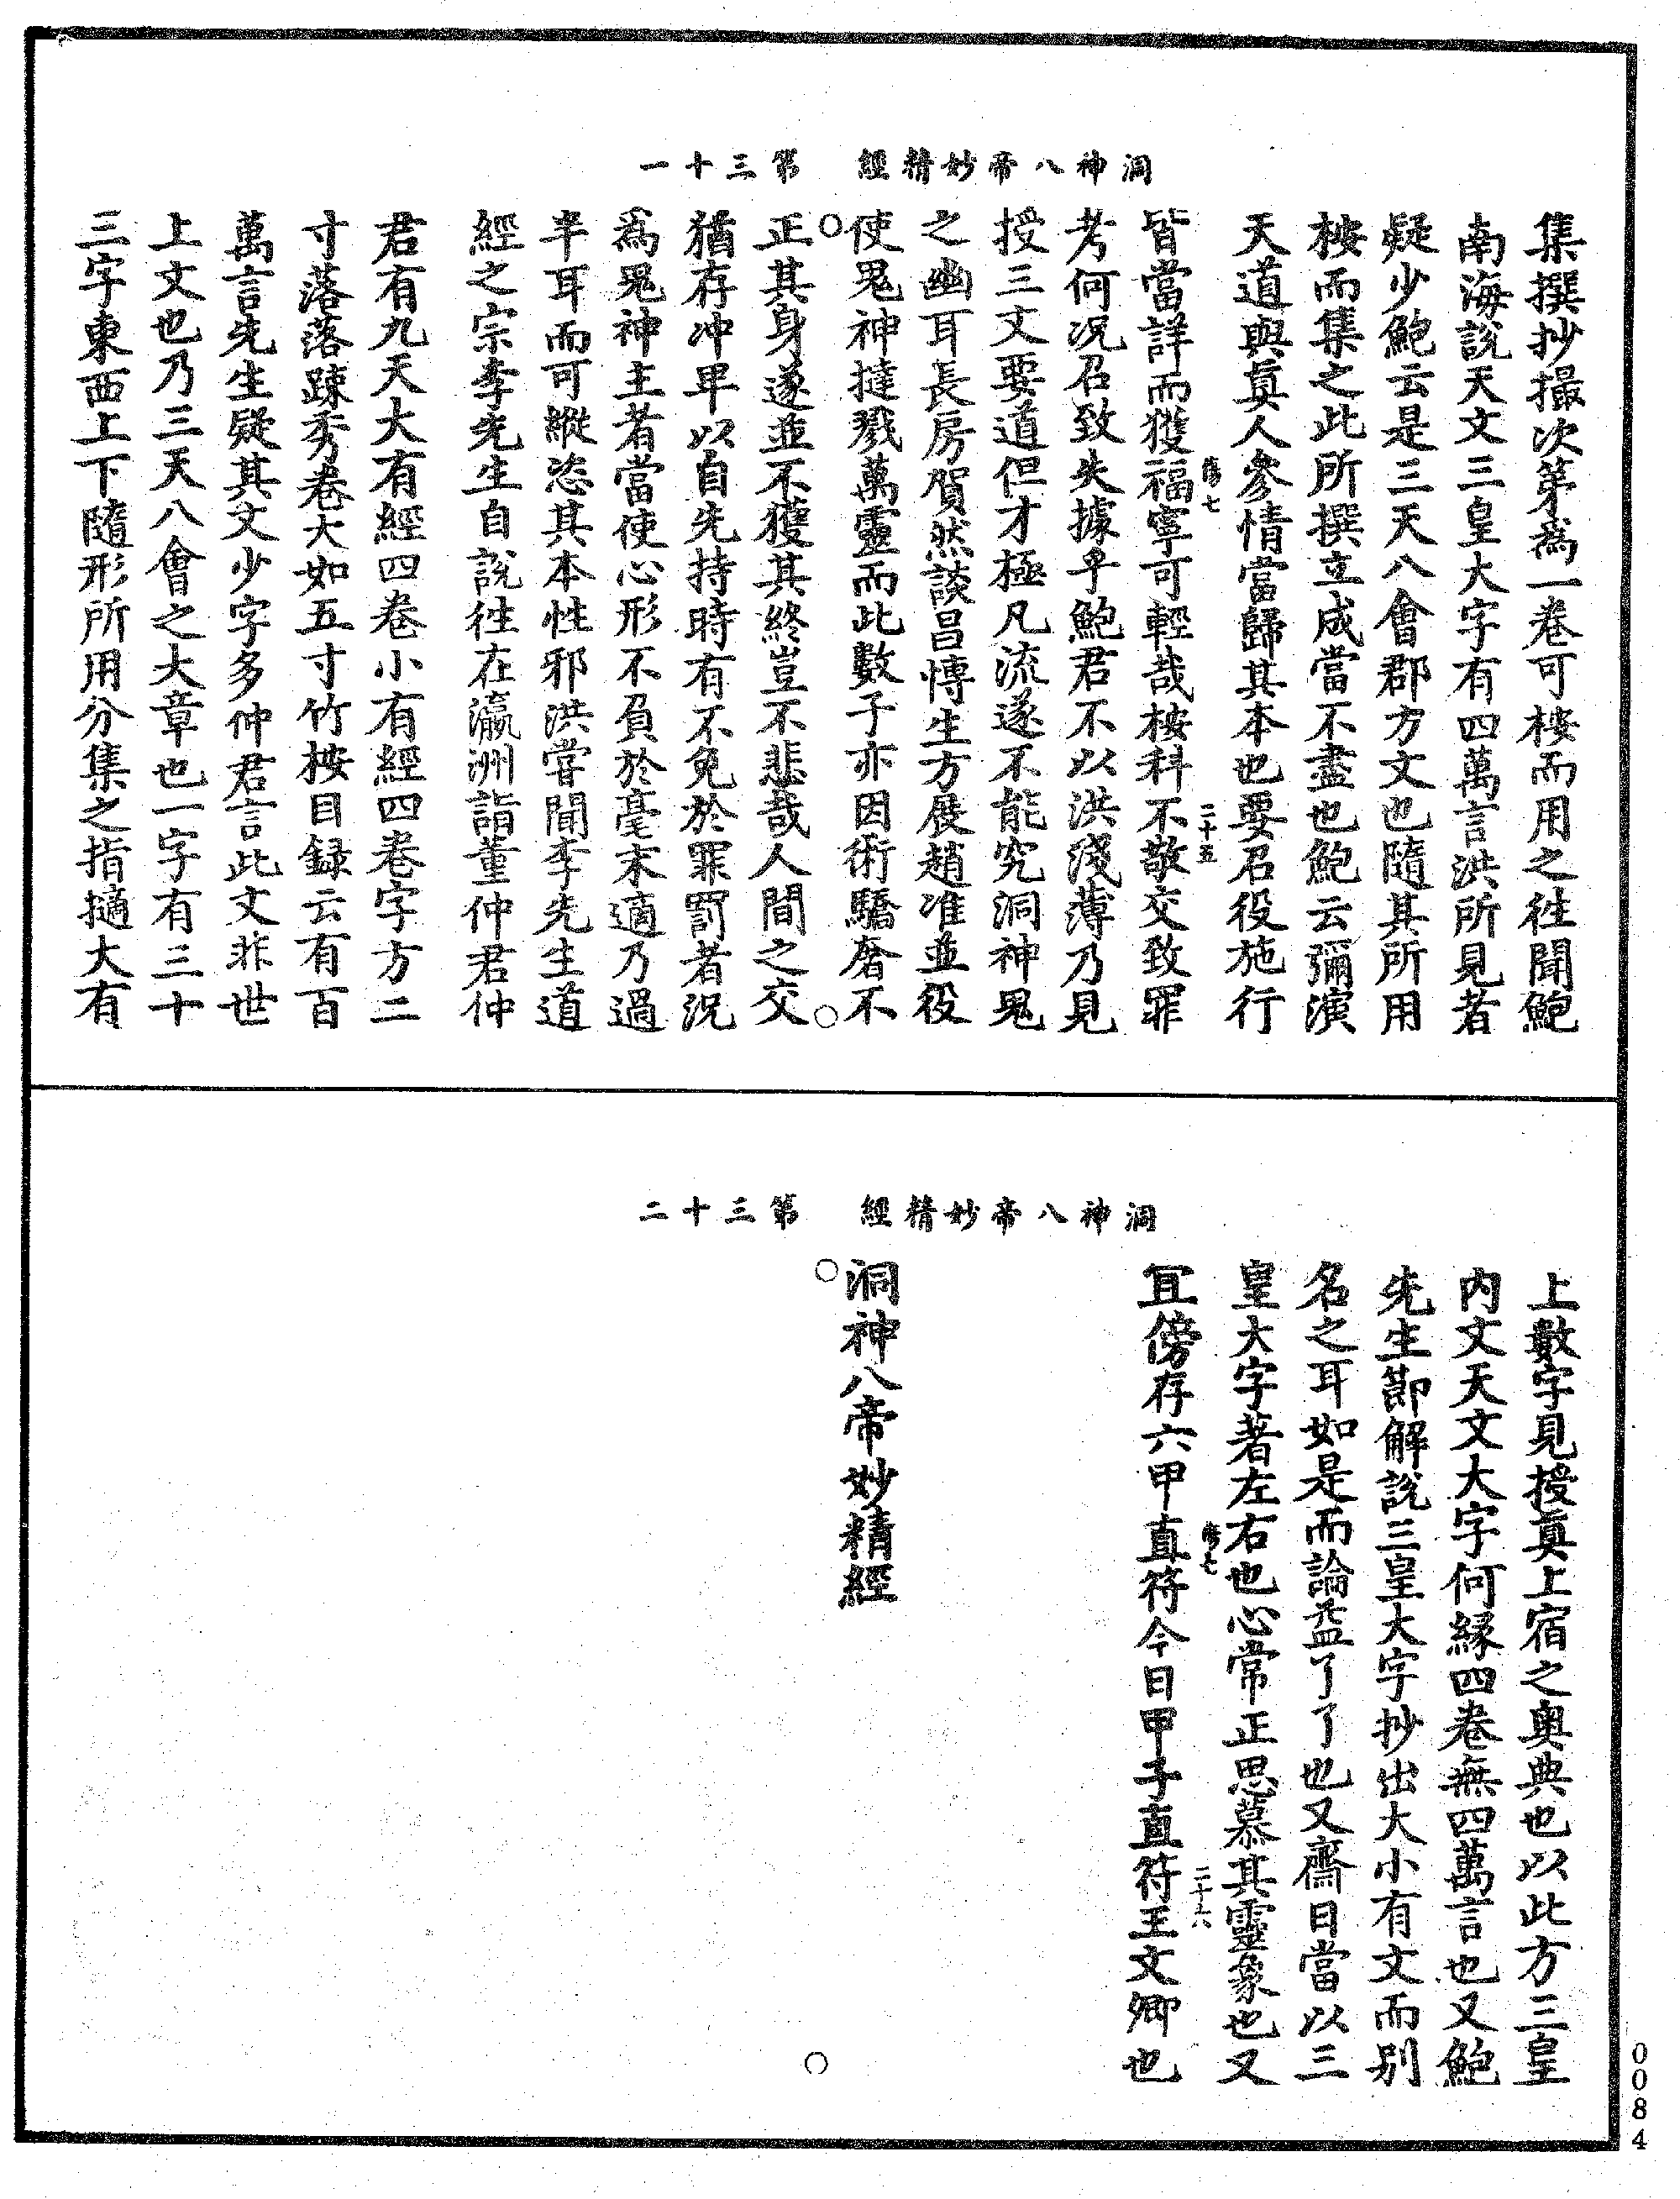 洞神八帝妙精經　第三十一
集撰抄撮次第爲一卷可桉而用之徃聞鮑
南海説天文三皇大字有四萬言洪所見者
疑少鮑云是三天八㑹郡方文也隨其所用
桉而集之此所撰立成當不盡也鮑云彌演
天道與眞人參情當歸其本也要召役施行
皆當詳而獲福寧可輕哉桉科不敬交致罪
傷七
二十五
考何況召致失據乎鮑君不以洪淺薄乃見
授三文要道但才極凡流遂不能究洞神鬼
之幽耳長房賀然談昌慱生方展趙准並役
使鬼神撻戮萬靈而此數子亦因術驕奢不
正其身遂並不獲其終豈不悲哉人間之交
猶存冲卑以自先持時有不免於罪罰者況
爲鬼神主者當使心形不負於毫末適乃過
半耳而可縱恣其本性邪洪嘗聞李先生道
經之宗李先生自説徃在瀛洲詣董仲君仲
君有九天大有經四卷小有經四卷字方二
寸落落踈秀卷大如五寸竹桉目録云有百
萬言先生疑其文少字多仲君言此文非世
上文也乃三天八會之大章也一字有三十
三字東西上下隨形所用分集之指擿大有
洞神八帝妙精經　第三十二
上數字見授眞上宿之奥典也以此方三皇
内文天文大字何縁四卷無四萬言也又鮑
先生節解説三皇大字抄出大小有文而别
名之耳如是而論益了了也又齋日當以三
皇大字著左右也心常正思慕其靈象也又
宜傍存六甲直符今日甲子直符王文卿也
傷七
二十六
洞神八帝妙精經
0084